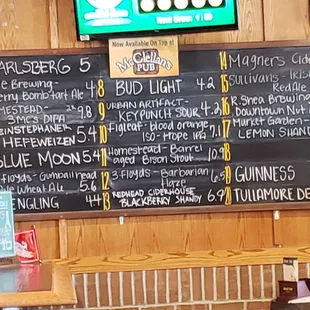 Now Available On Tap
McClellans
PUB
CARLSBERG 5
Brewing
Berry Bomb Tart Ale 4.8
HOMESTEAD
3MCs DIPA 9.8
WEINSTEPHANER
HEFEWEIZEN 5.4
BLUE MOON 5.4
3 Floyds - Gumballhead
Wheat Ale 5.6
YUENGLING 4.4
8
9
10
11
12
13
BUD LIGHT 4.2
URBAN ARTIFACT-
KEYPUNCH SOUR 4.2
Figleaf - blood orange
ISO-Hope IPA 7.1
Homestead - Barrel
aged Bison Stout 10.9
3 Floyds - Barbarian
Haze 6.5
REDHEAD CIDERHOUSE
BLACKBERRY SHANDY 6.9
14
15
16
17
18
19
20
MAGNERS Cide
Sullivans - Irish
Red Ale
R. Shea Brewing
Downtown Nut
Market Garden
LEMON SHAND
GUINNESS
TULLAMORE DE